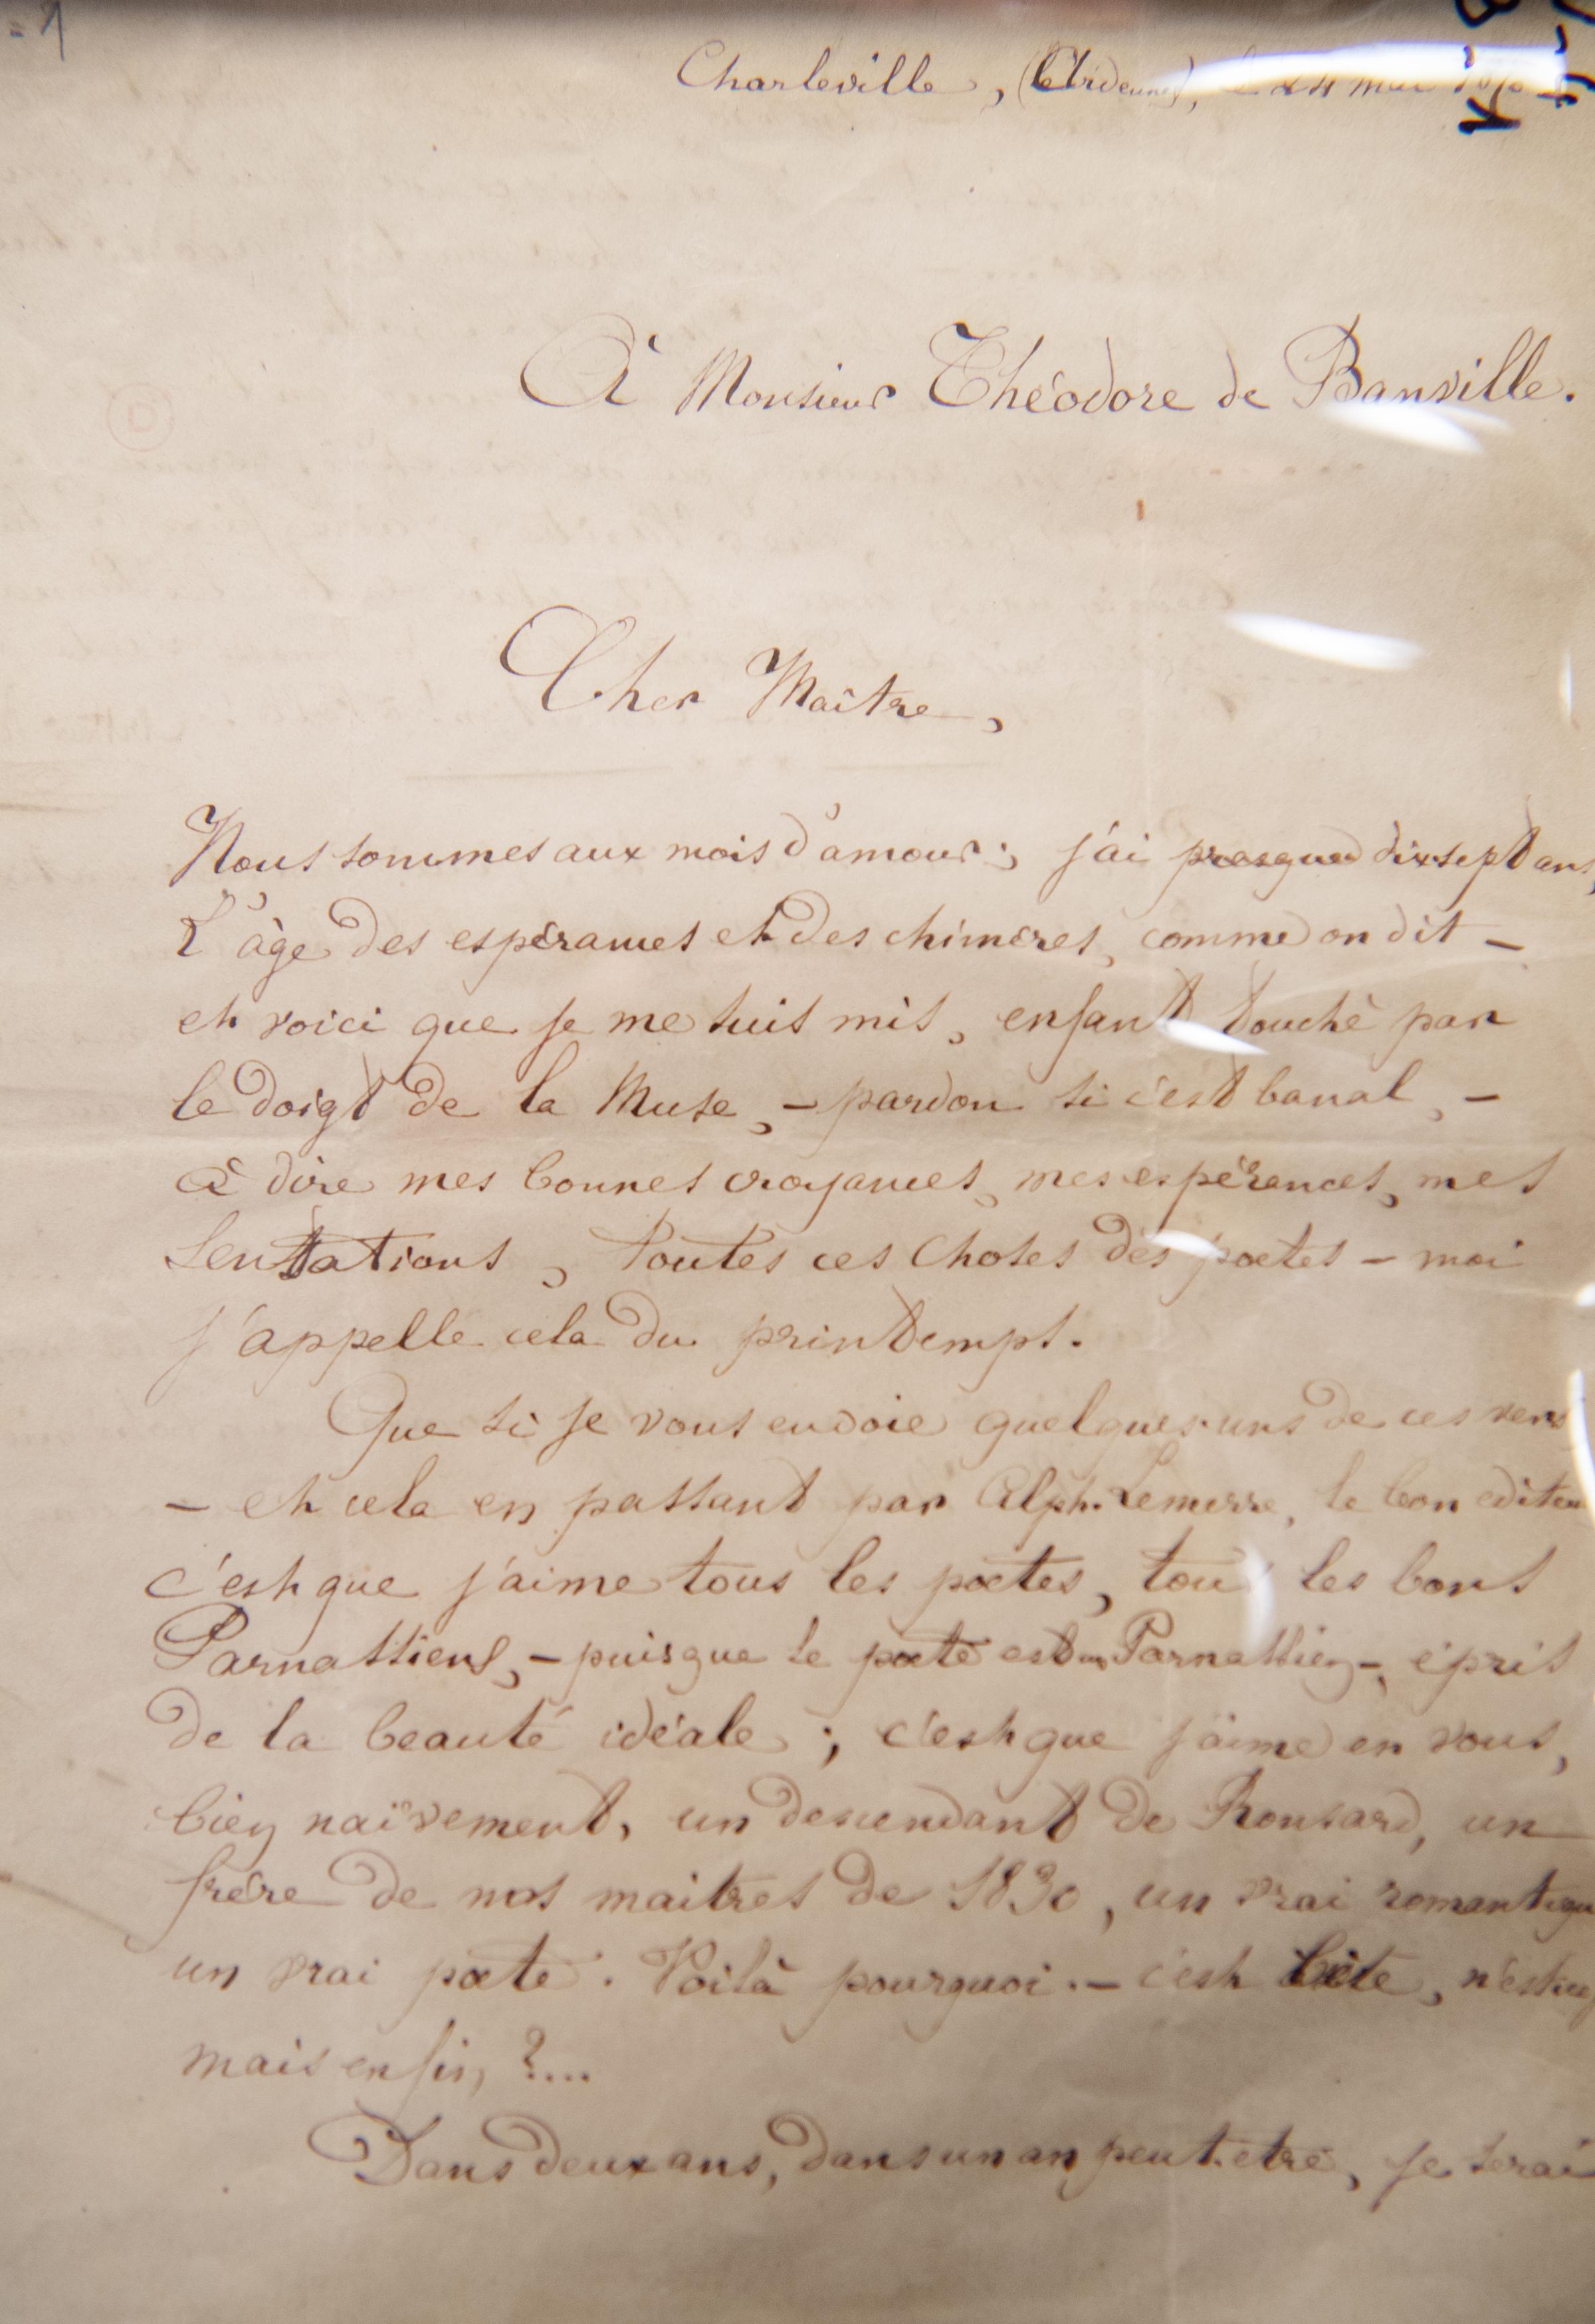 = 1
Charleville, (Ardennes), le 24 mai 1870
À Monsieur Théodore de Banville.
Cher Maître,
Nous sommes aux mois d'amour ; j'ai presque dix sept ans,
L'âge des espérances et des chimères, comme on dit —
et voici que je me suis mis, enfant touché par
le doigt de la Muse, — pardon si c'est banal, —
à dire mes bonnes croyances, mes espérances, mes
sensations, toutes ces choses des poètes — moi
j'appelle cela du printemps.
Que si je vous envoie quelques-uns de ces vers
— et cela en passant par Alph. Lemerre, le bon éditeu
c'est que j'aime tous les poètes, tous les bons
Parnassiens, — puisque le poète est un Parnassien —, épris
de la beauté idéale ; c'est que j'aime en vous,
bien naïvement, un descendant de Ronsard, un
frère de nos maîtres de 1830, un vrai romantiqu
un vrai poète. Voilà pourquoi. — c'est bête, n'est-ce p
mais enfin, ?...
Dans deux ans, dans un an peut-être, je serai